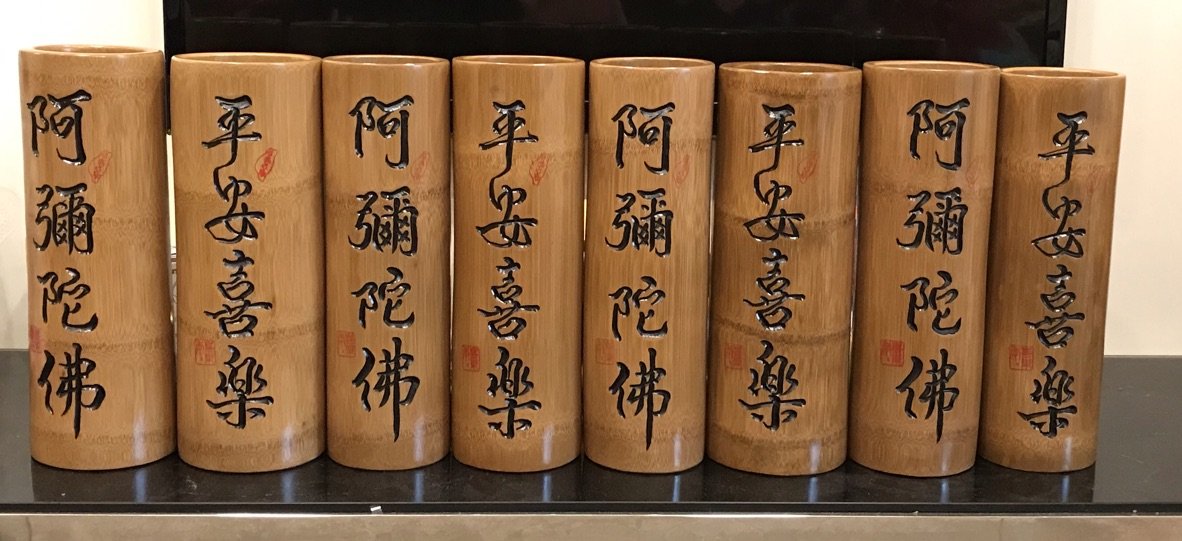 阿彌陀佛
平安喜樂
阿彌陀佛
平安喜樂
阿彌陀佛
平安喜樂
阿彌陀佛
平安喜樂